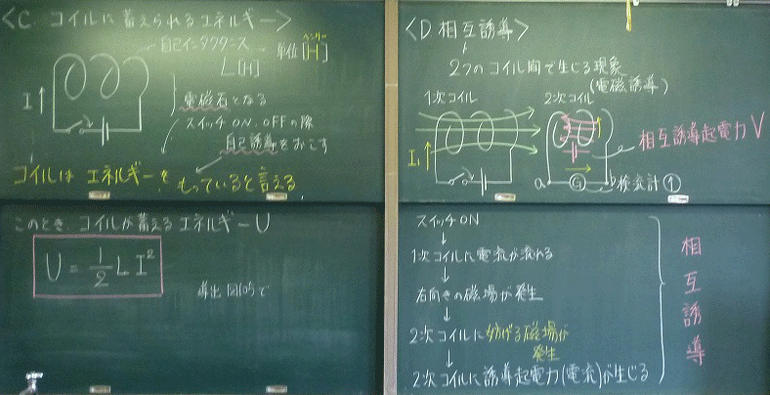 <C. コイルに蓄えられるエネルギー>
自己インダクタンス
L[H]
単位[H]
ヘンリー
I
電磁石となる
スイッチON、OFFの際
自己誘導をおこす
コイルは エネルギーを もっていると言える
このとき、コイルが蓄えるエネルギーU
U = 1/2 L I²
導出
で
<D 相互誘導>
2つのコイル間で生じる現象
(電磁誘導)
1次コイル
2次コイル
I₁
相互誘導起電力V
a
G
b
検流計
スイッチON
↓
1次コイルに電流が流れる
↓
右向きの磁場が発生
↓
2次コイルに妨げる磁場が
発生
↓
2次コイルに誘導起電力(電流)が生じる
相互誘導